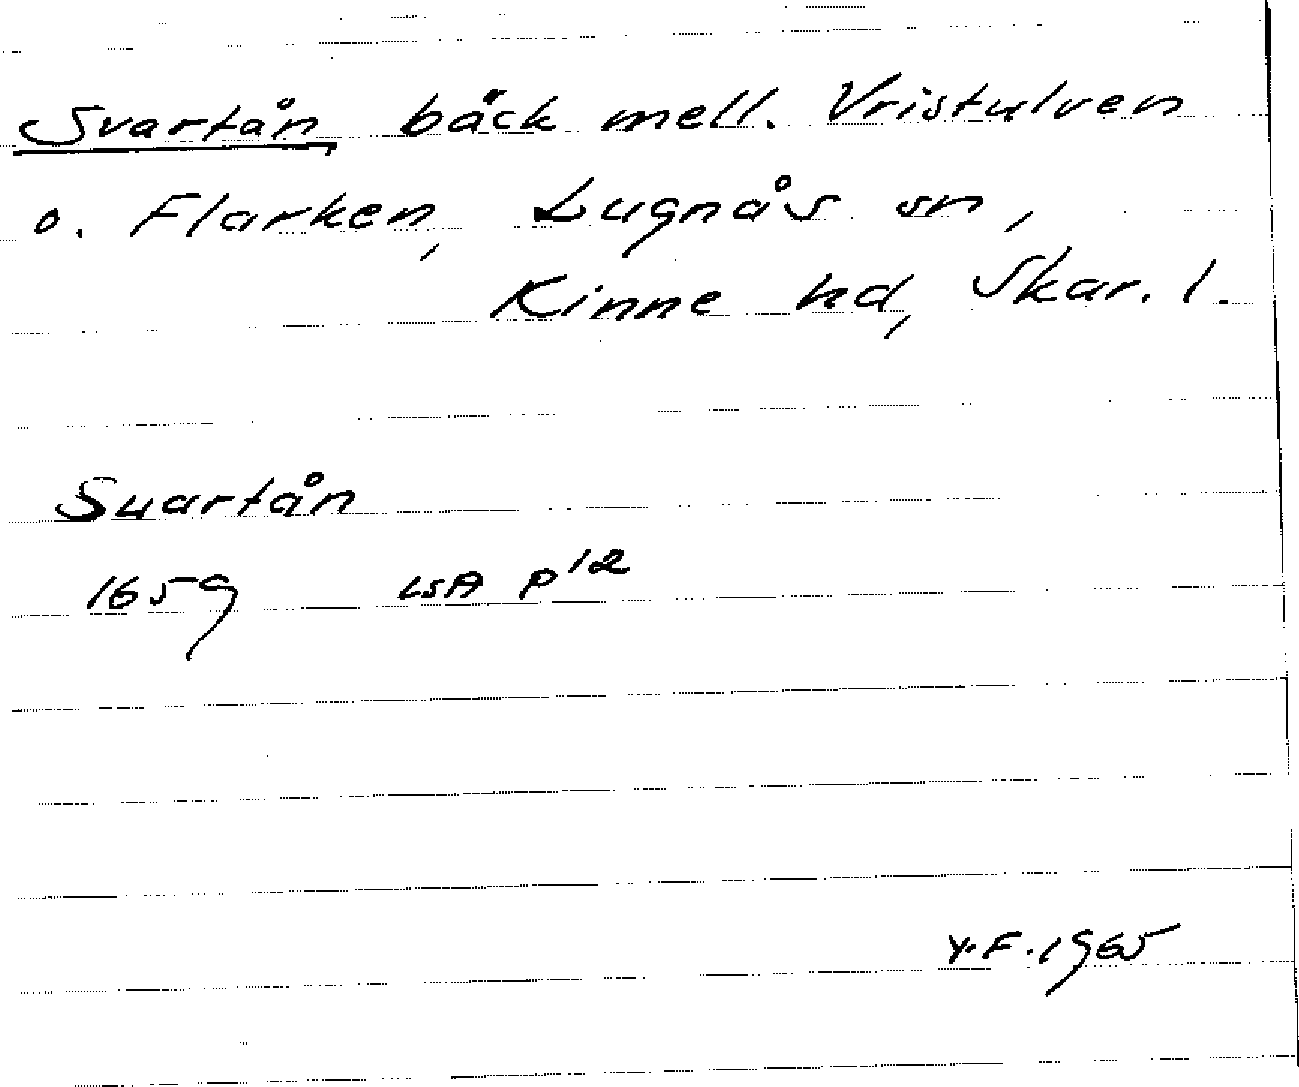 Svartån bäck mell. Vristulven
o. Flarken, Lugnås sn,
Kinne hd, Skar. l.
Suartån
1659 LSA P 12
Y.F. 1965